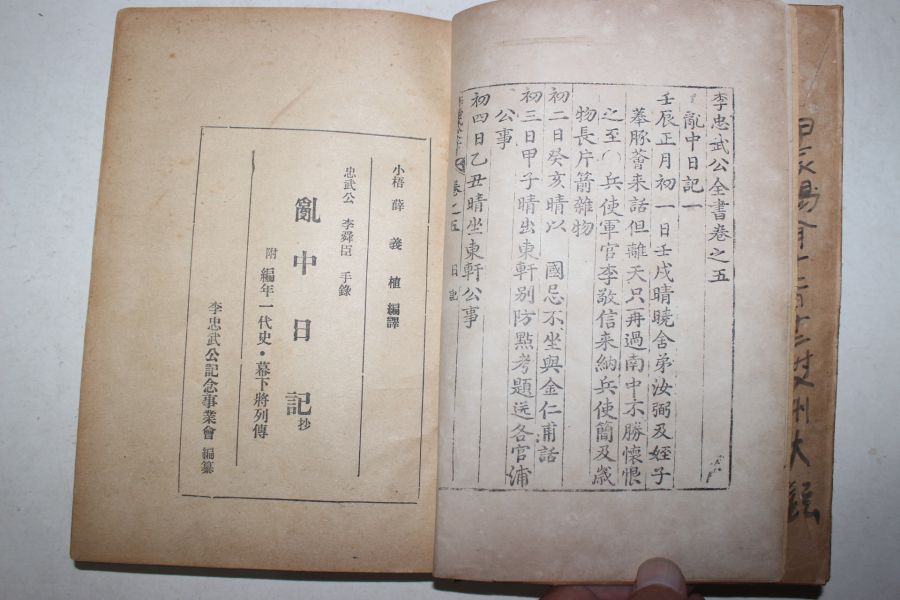 李忠武公全書卷之五
亂中日記一
壬辰正月初一日壬戌晴曉舍弟汝弼及姪子
菶豚薈来話但離天只再過南中不勝懷恨
之至〇兵使軍官李敬信来納兵使簡及歲
物長片箭雜物
初二日癸亥晴以 國忌不坐與金仁甫話
初三日甲子晴出東軒別防點考題送各官浦
公事
初四日乙丑晴坐東軒公事
卷之五 日記
小梧 薛義植 編譯
忠武公 李舜臣 手錄
亂中日記 抄
附 編年一代史・幕下將列傳
李忠武公記念事業會 編纂